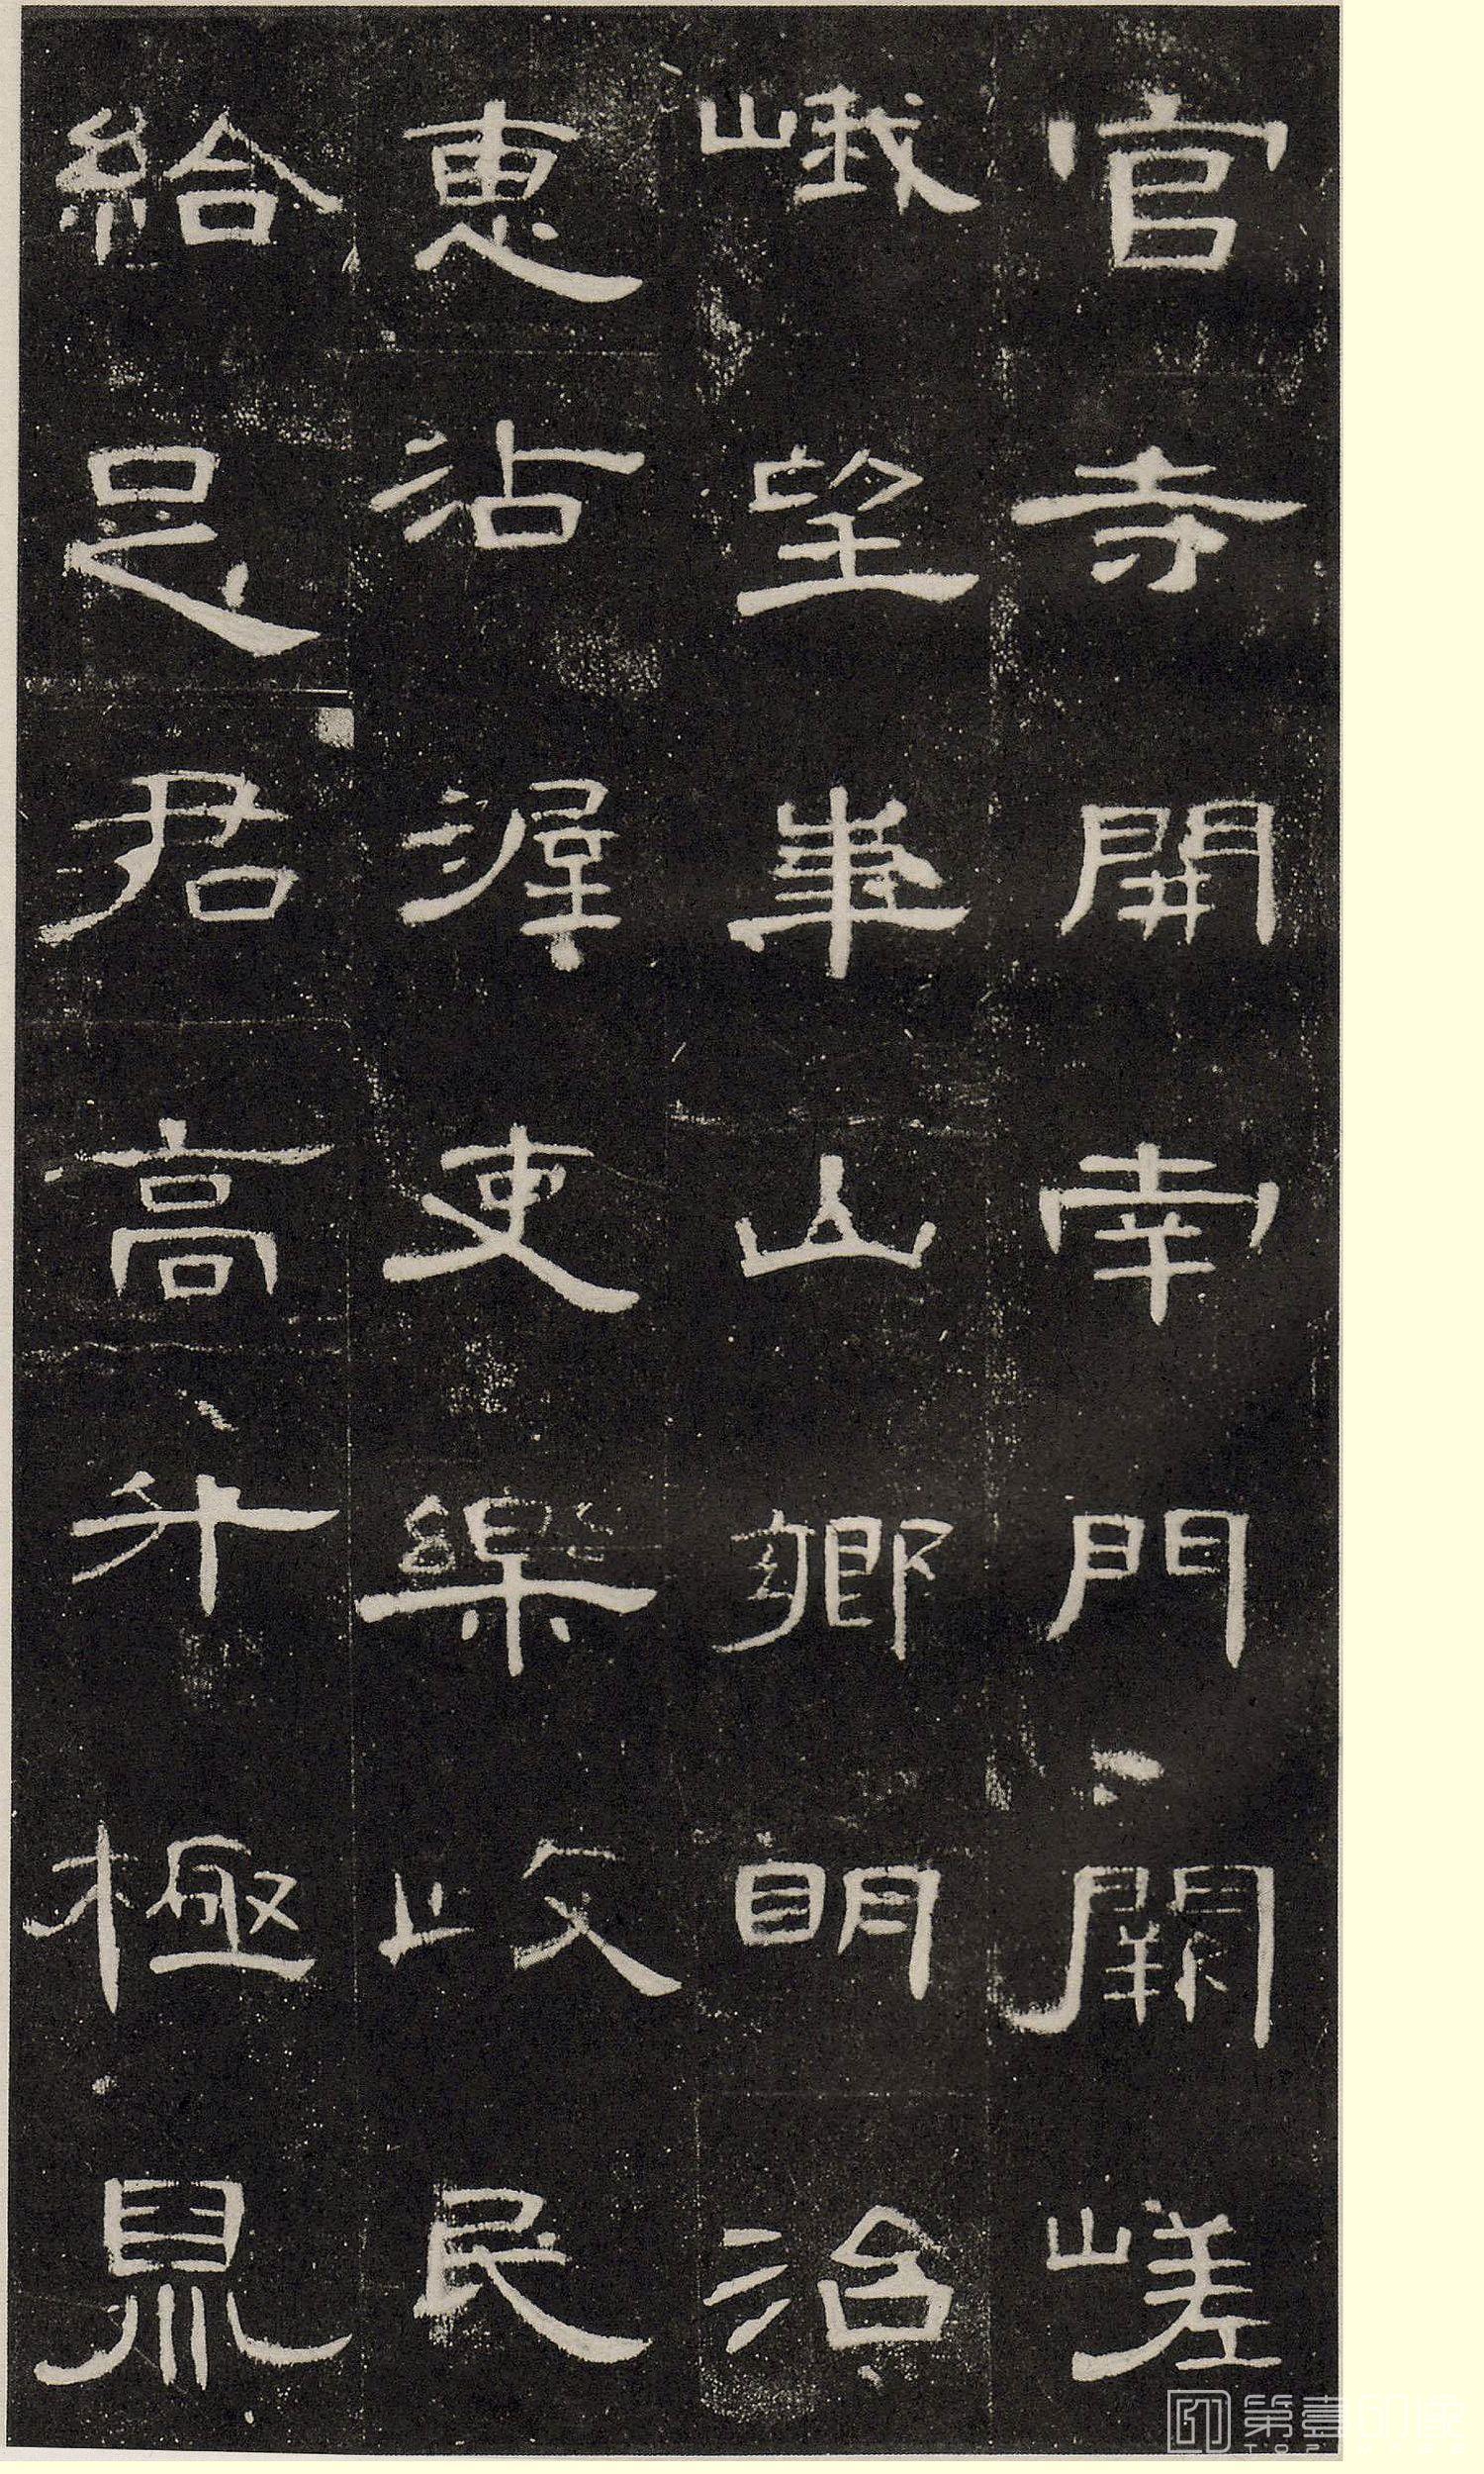 官寺開南門闕嵯
峨望華山鄉明治
惠沾渥吏樂政民
給足君高升極鼎
第壹印